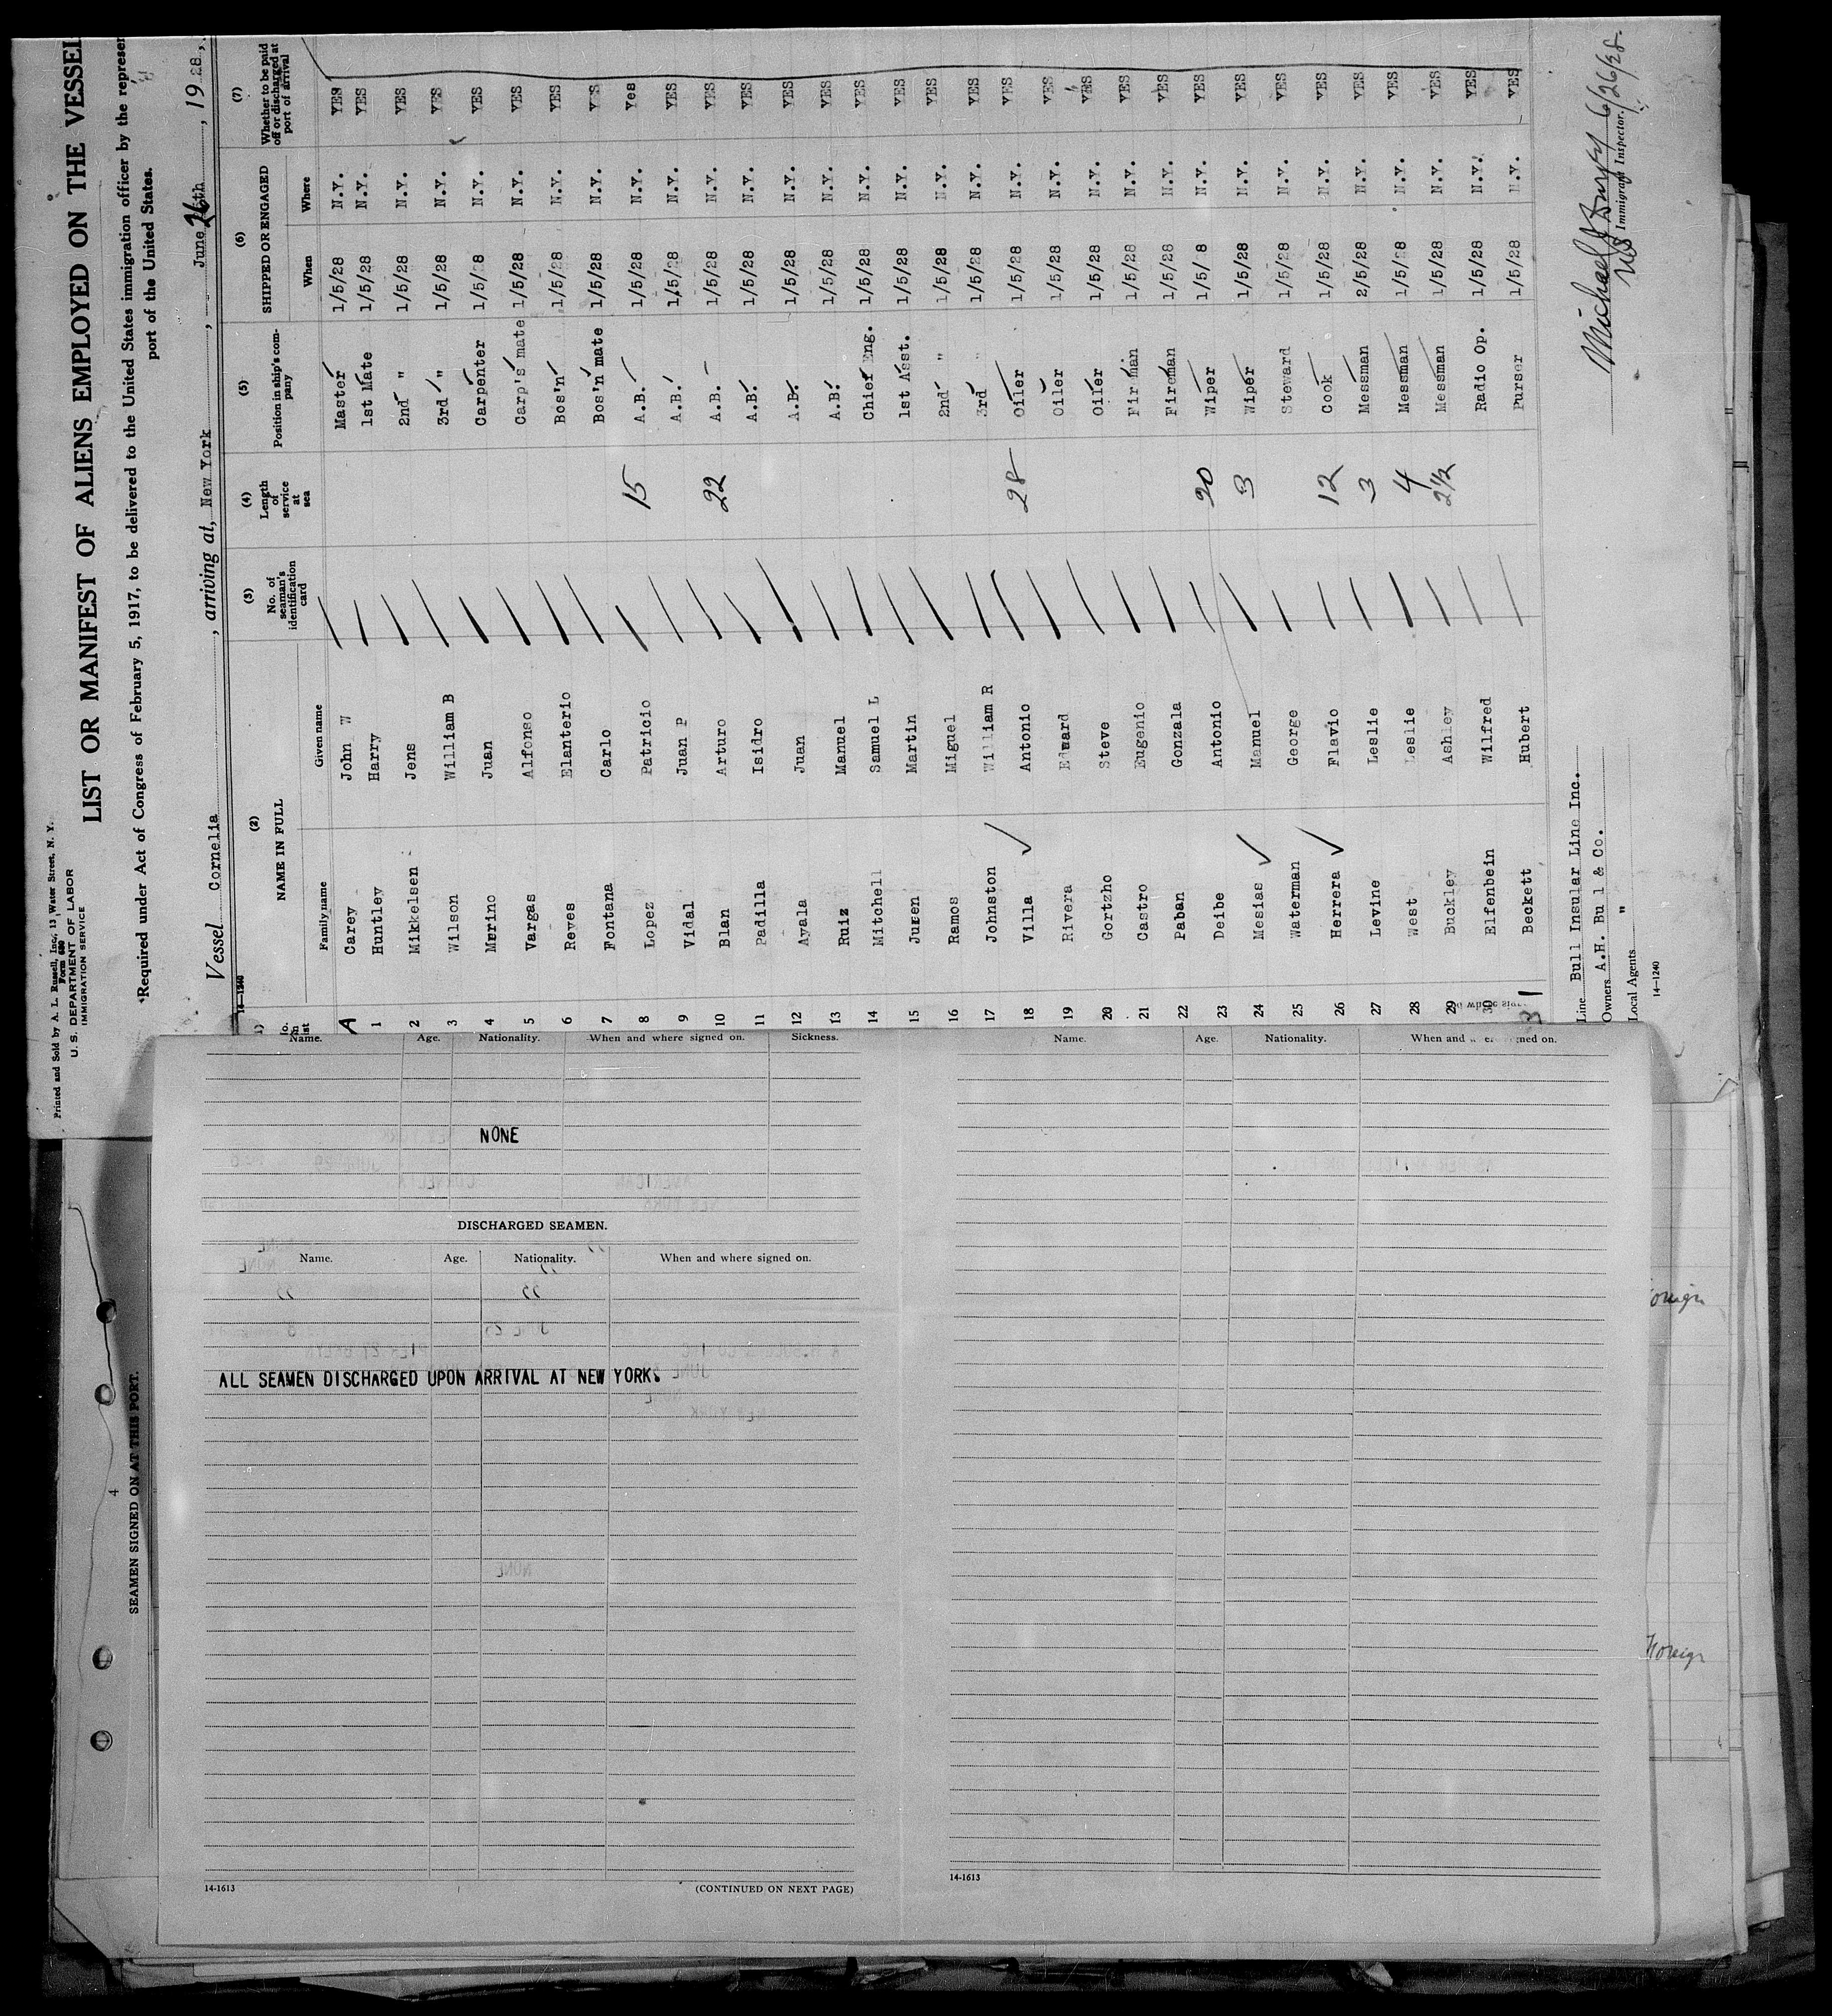 Printed and Sold by A. L. Russell, Inc., 13 Water Street, N. Y.
Form 680
U. S. DEPARTMENT OF LABOR
IMMIGRATION SERVICE
LIST OR MANIFEST OF ALIENS EMPLOYED ON THE VESSEL
Required under Act of Congress of February 5, 1917, to be delivered to the United States immigration officer by the represen
port of the United States.
Vessel Cornelia, arriving at, New York, June 26th, 1928,
14-1240
(2) (3) (4) (5) (6) (7)
NAME IN FULL No. of seaman's identification card Length of service at sea Position in ship's company SHIPPED OR ENGAGED Whether to be paid off or discharged at port of arrival
Family name Given name When Where
A Carey John W Master 1/5/28 N.Y. YES
1 Huntley Harry 1st Mate 1/5/28 N.Y. YES
2 Mikkelsen Jens 2nd " 1/5/28 N.Y. YES
3 Wilson William B 3rd " 1/5/28 N.Y. YES
4 Merino Juan Carpenter 1/5/28 N.Y. YES
5 Vargas Alfonso Carp's mate 1/5/28 N.Y. YES
6 Reyes Elanterio Bos'n 1/5/28 N.Y. YES
7 Fontana Carlo Bos'n mate 1/5/28 N.Y. YES
8 Lopez Patricio 15 A.B. 1/5/28 N.Y. Yes
9 Vidal Juan P A.B. 1/5/28 N.Y. YES
10 Blan Arturo 22 A.B. 1/5/28 N.Y. YES
11 Padilla Isidro A.B. 1/5/28 N.Y. YES
12 Ayala Juan A.B. 1/5/28 N.Y. YES
13 Ruiz Manuel A.B. 1/5/28 N.Y. YES
14 Mitchell Samuel L Chief Eng. 1/5/28 N.Y. YES
15 Martin 1st Asst. 1/5/28 N.Y. YES
16 Ramos Miguel 2nd " 1/5/28 N.Y. YES
17 Johnston William R 3rd " 1/5/28 N.Y. YES
18 Villa Antonio 28 Oiler 1/5/28 N.Y. YES
19 Rivera Edward Oiler 1/5/28 N.Y. YES
20 Gortzho Steve Oiler 1/5/28 N.Y. YES
21 Castro Eugenio Fireman 1/5/28 N.Y. YES
22 Paban Gonzala Fireman 1/5/28 N.Y. YES
23 Deibe Antonio 20 Wiper 1/5/ 8 N.Y. YES
24 Mesias Manuel 3 Wiper 1/5/28 N.Y. YES
25 Waterman George Steward 1/5/28 N.Y. YES
26 Herrera Flavio 12 Cook 1/5/28 N.Y. YES
27 Levine Leslie 3 Messman 2/5/28 N.Y. YES
28 West Leslie 4 Messman 1/5/28 N.Y. YES
29 Buckley Ashley 2½ Messman 1/5/28 N.Y. YES
30 Elfenbein Wilfred Radio Op. 1/5/28 N.Y. YES
31 Beckett Hubert Purser 1/5/28 N.Y. YES
Line Bull Insular Line Inc.
Owners A.H. Bull & Co.
Local Agents "
14-1240
Michael J
US Immigrant Inspector. 6/26/28.
4
SEAMEN SIGNED ON AT THIS PORT.
Name. Age. Nationality. When and where signed on. Sickness.
NONE
DISCHARGED SEAMEN.
Name. Age. Nationality. When and where signed on.
ALL SEAMEN DISCHARGED UPON ARRIVAL AT NEW YORK.
NONE
14-1613
(CONTINUED ON NEXT PAGE)
Name. Age. Nationality. When and signed on.
14-1613
oreign
Foreign